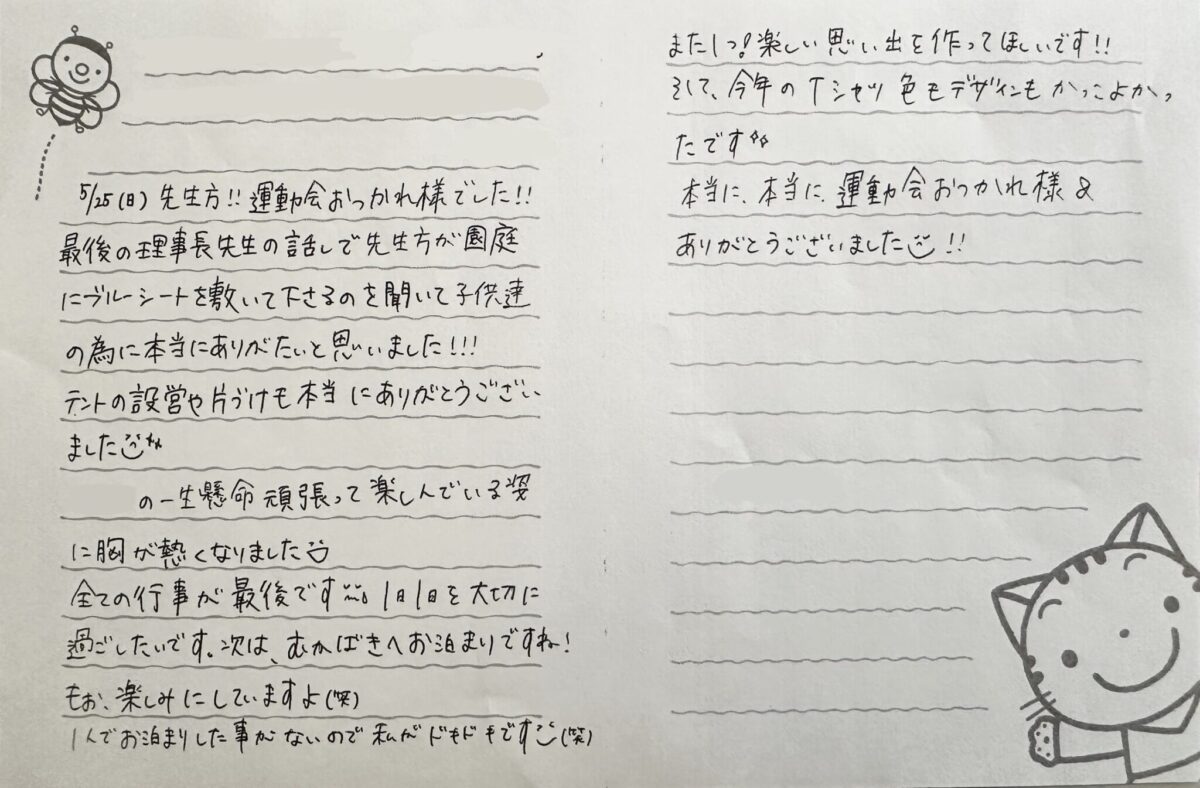 5/25(日) 先生方!! 運動会おつかれ様でした!!
最後の理事長先生の話しで先生方が園庭
にブルーシートを敷いて下さるのを聞いて子供達
の為に本当にありがたいと思いました!!!
テントの設営や片づけも本当にありがとうござい
ました
の一生懸命頑張って楽しんでいる姿
に胸が熱くなりました
全ての行事が最後です 1日1日を大切に
過ごしたいです。次は、むかばきへお泊まりですね!
もお、楽しみにしていますよ(笑)
1人でお泊まりした事がないので私がドキドキです(笑)
また1つ!楽しい思い出を作ってほしいです!!
そして、今年のTシャツ色もデザインもかっこよかっ
たです
本当に、本当に、運動会おつかれ様&
ありがとうございました!!